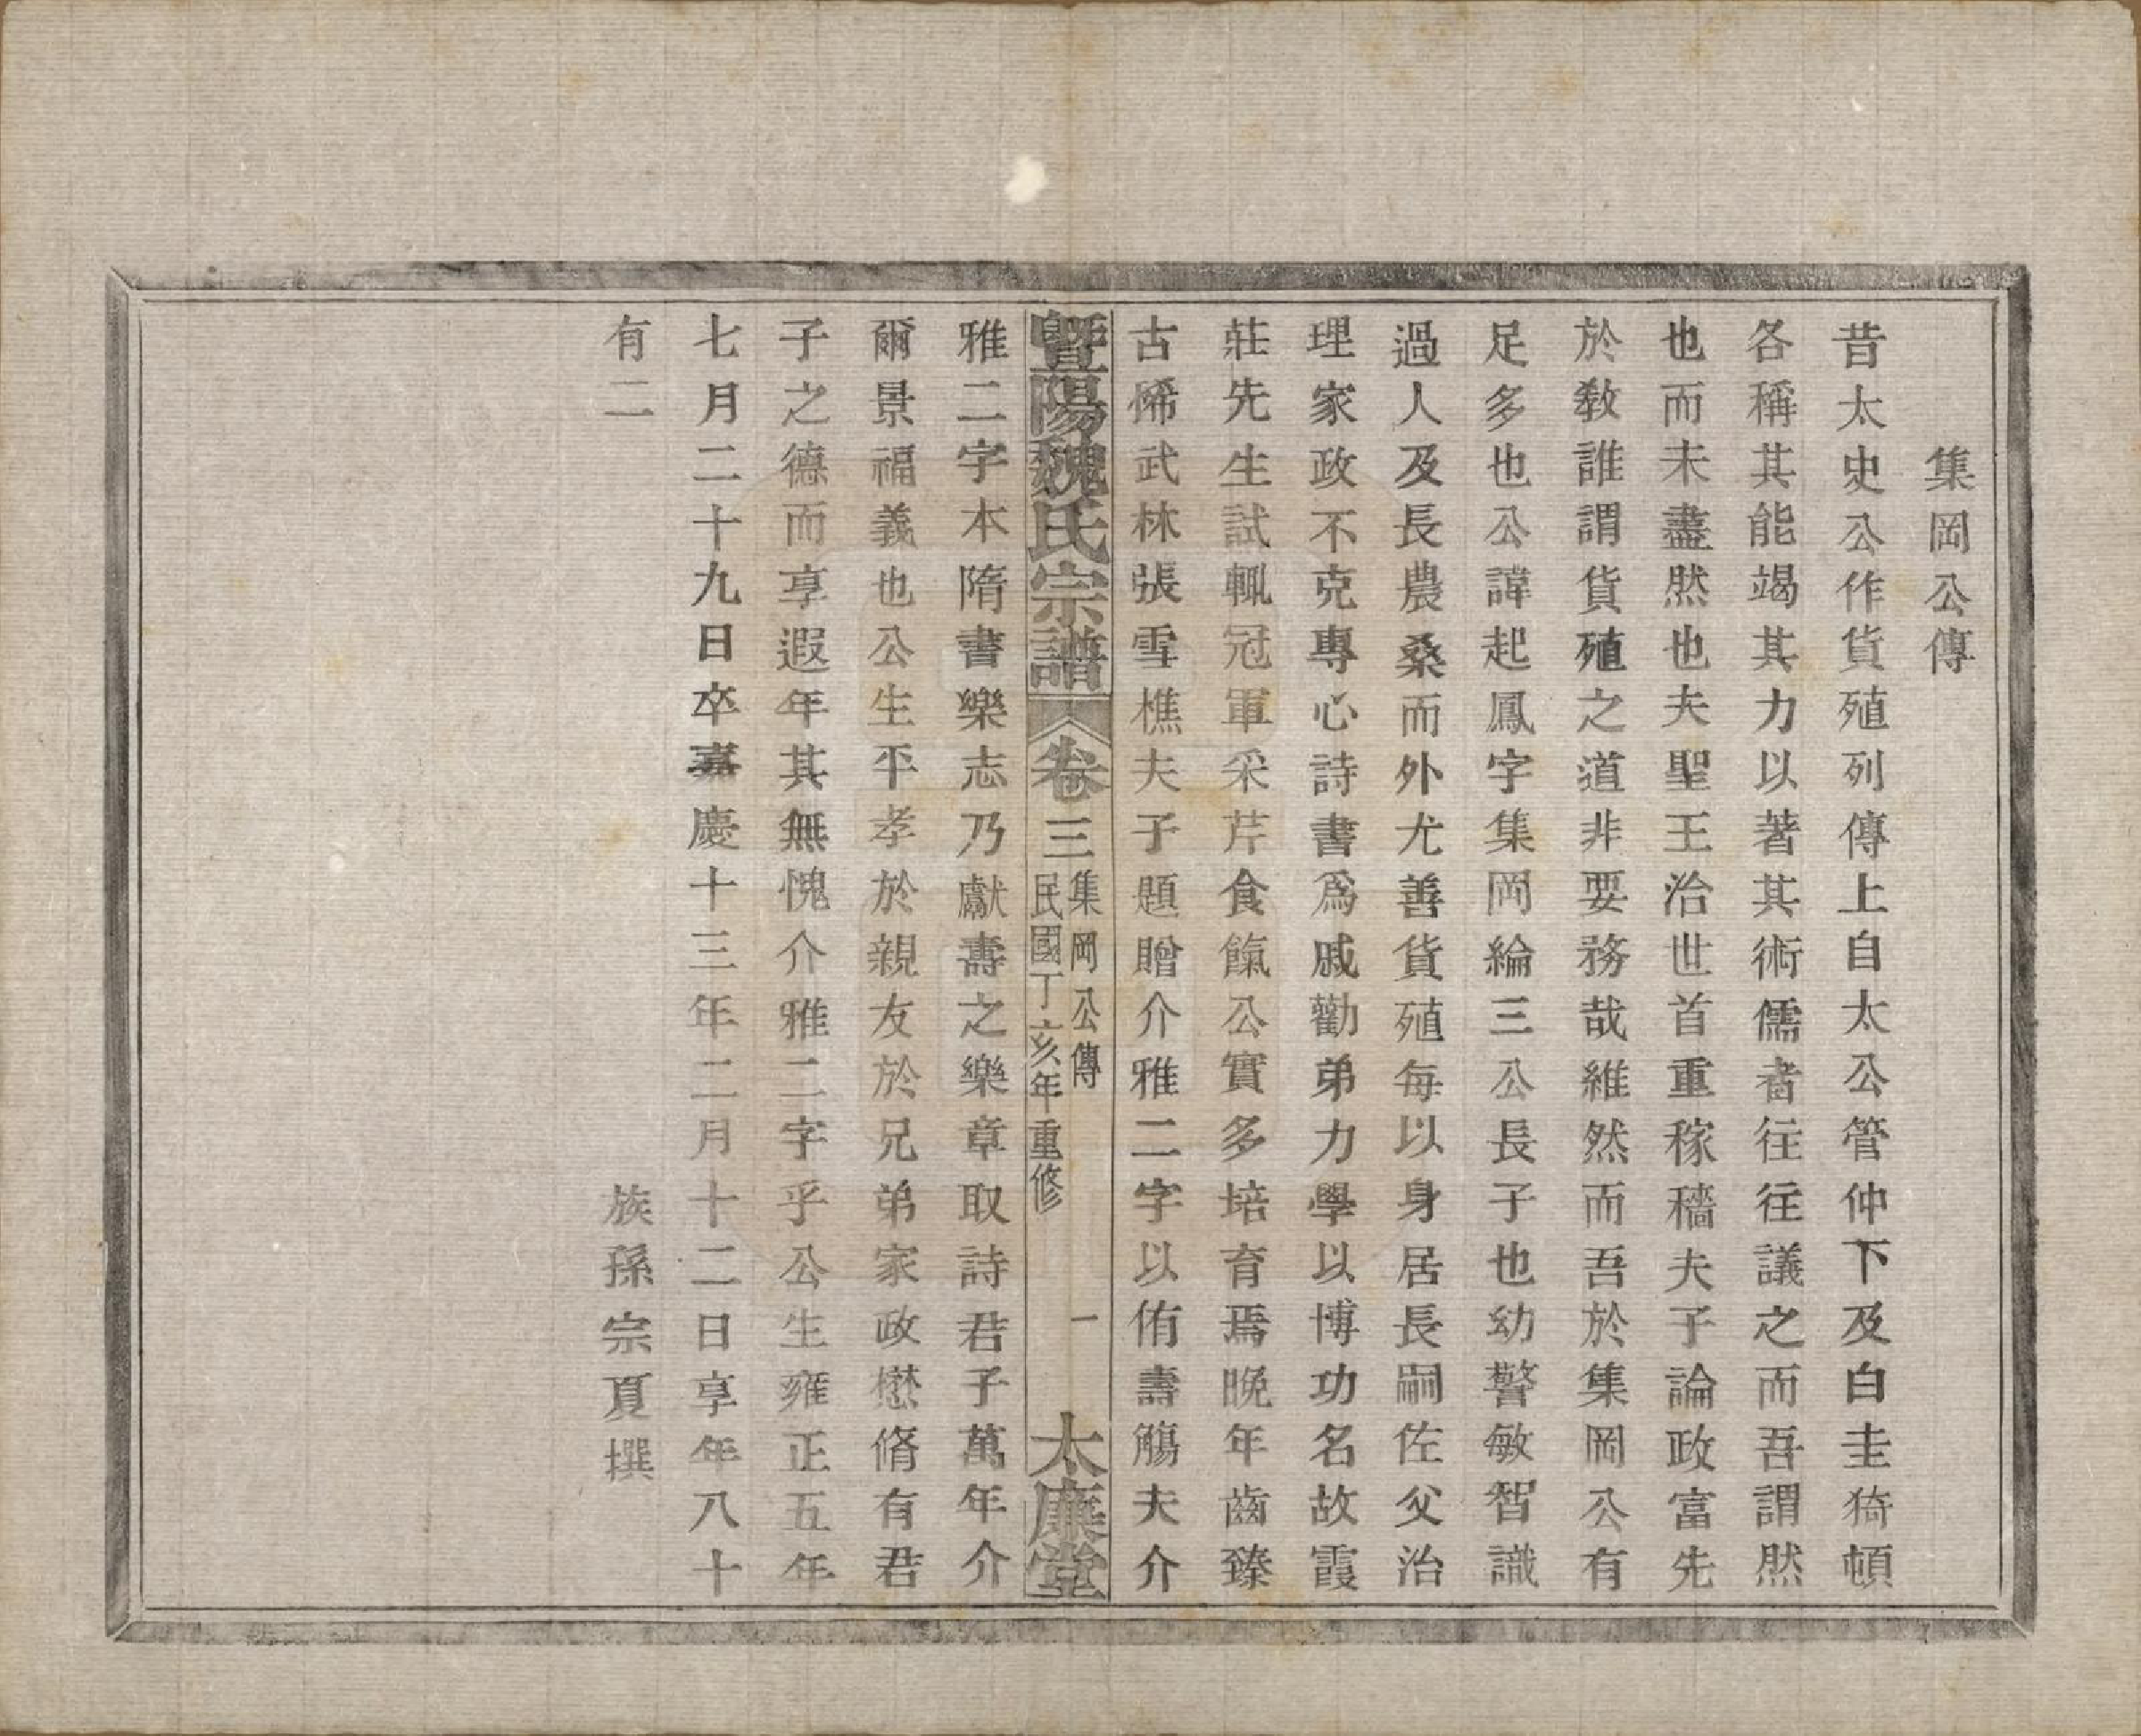 集岡公傳
昔太史公作貨殖列傳上自太公管仲下及白圭猗頓
各稱其能竭其力以著其術儒者往往議之而吾謂然
也而未盡然也夫聖王治世首重稼穡夫子論政富先
於敎誰謂貨殖之道非要務哉維然而吾於集岡公有
足多也公諱起鳳字集岡綸三公長子也幼警敏智識
過人及長農桑而外尤善貨殖每以身居長嗣佐父治
理家政不克專心詩書爲戚勸弟力學以博功名故霞
莊先生試輒冠軍采芹食餼公實多培育焉晚年齒臻
古俙武林張雪樵夫子題贈介雅二字以侑壽觴夫介
暨陽魏氏宗譜 卷三 集岡公傳 民國丁亥年重修 一 太廉堂
雅二字本隋書樂志乃獻壽之樂章取詩君子萬年介
爾景福義也公生平孝於親友於兄弟家政懋脩有君
子之德而享遐年其無愧介雅二字乎公生雍正五年
七月二十九日卒嘉慶十三年二月十二日享年八十
有二
族孫宗夏撰